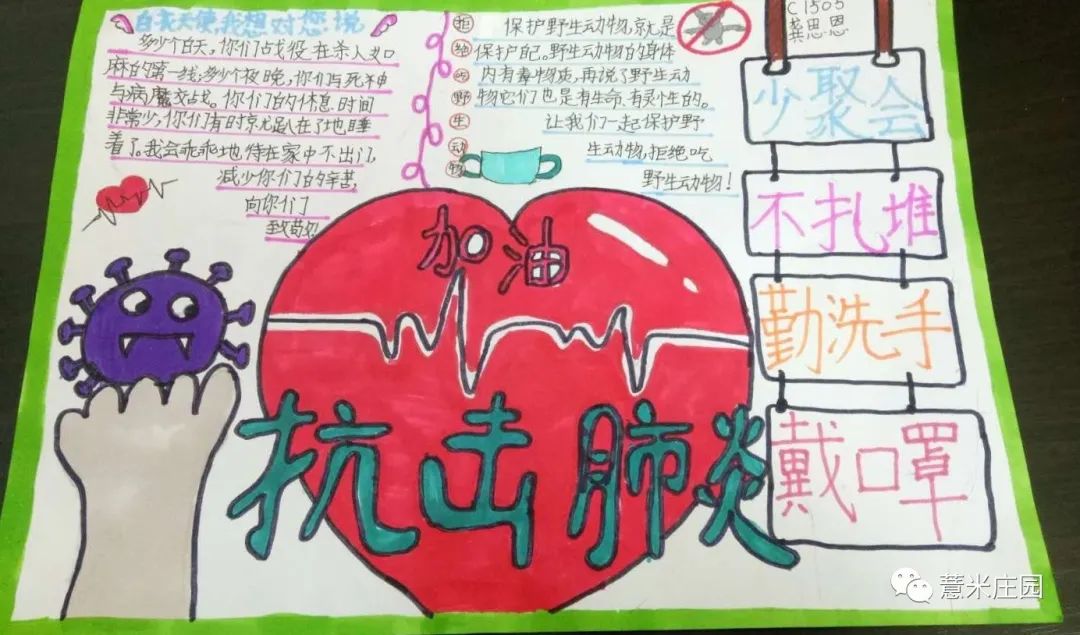 白衣天使,我想对您说
多少个白天,你们战役在杀人如
麻的第一线,多少个夜晚,你们与死神
与病魔交战。你们的休息时间
非常少,你们有时京尤是趴在了地睡
着了。我会乖乖地待在家中不出门,
减少你们的辛苦,
向你们
致敬
拒
绝
吃
野
生
动
物
保护野生动物,就是
保护自己。野生动物的身体
内有毒物质,再说了野生动
物它们也是有生命、有灵性的。
让我们一起保护野
生动物,拒绝吃
野生动物!
C1505
龚思恩
少聚会
不扎堆
勤洗手
戴口罩
加油
抗击肺炎
薏米庄园